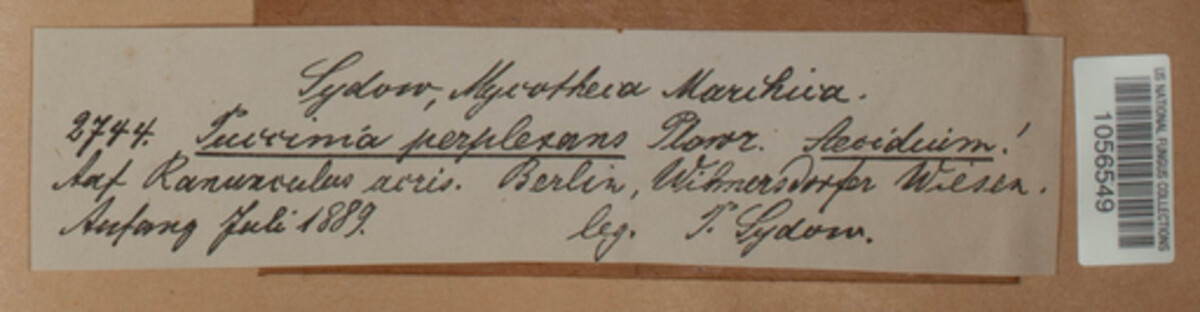 Sydow, Mycotheca Marchica.
2744. Puccinia perplexans Plowr. Aecidium!
Auf Ranunculus acris. Berlin, Wilmersdorfer Wiesen.
Anfang Juli 1889. leg. P. Sydow.
US NATIONAL FUNGUS COLLECTIONS
1056549